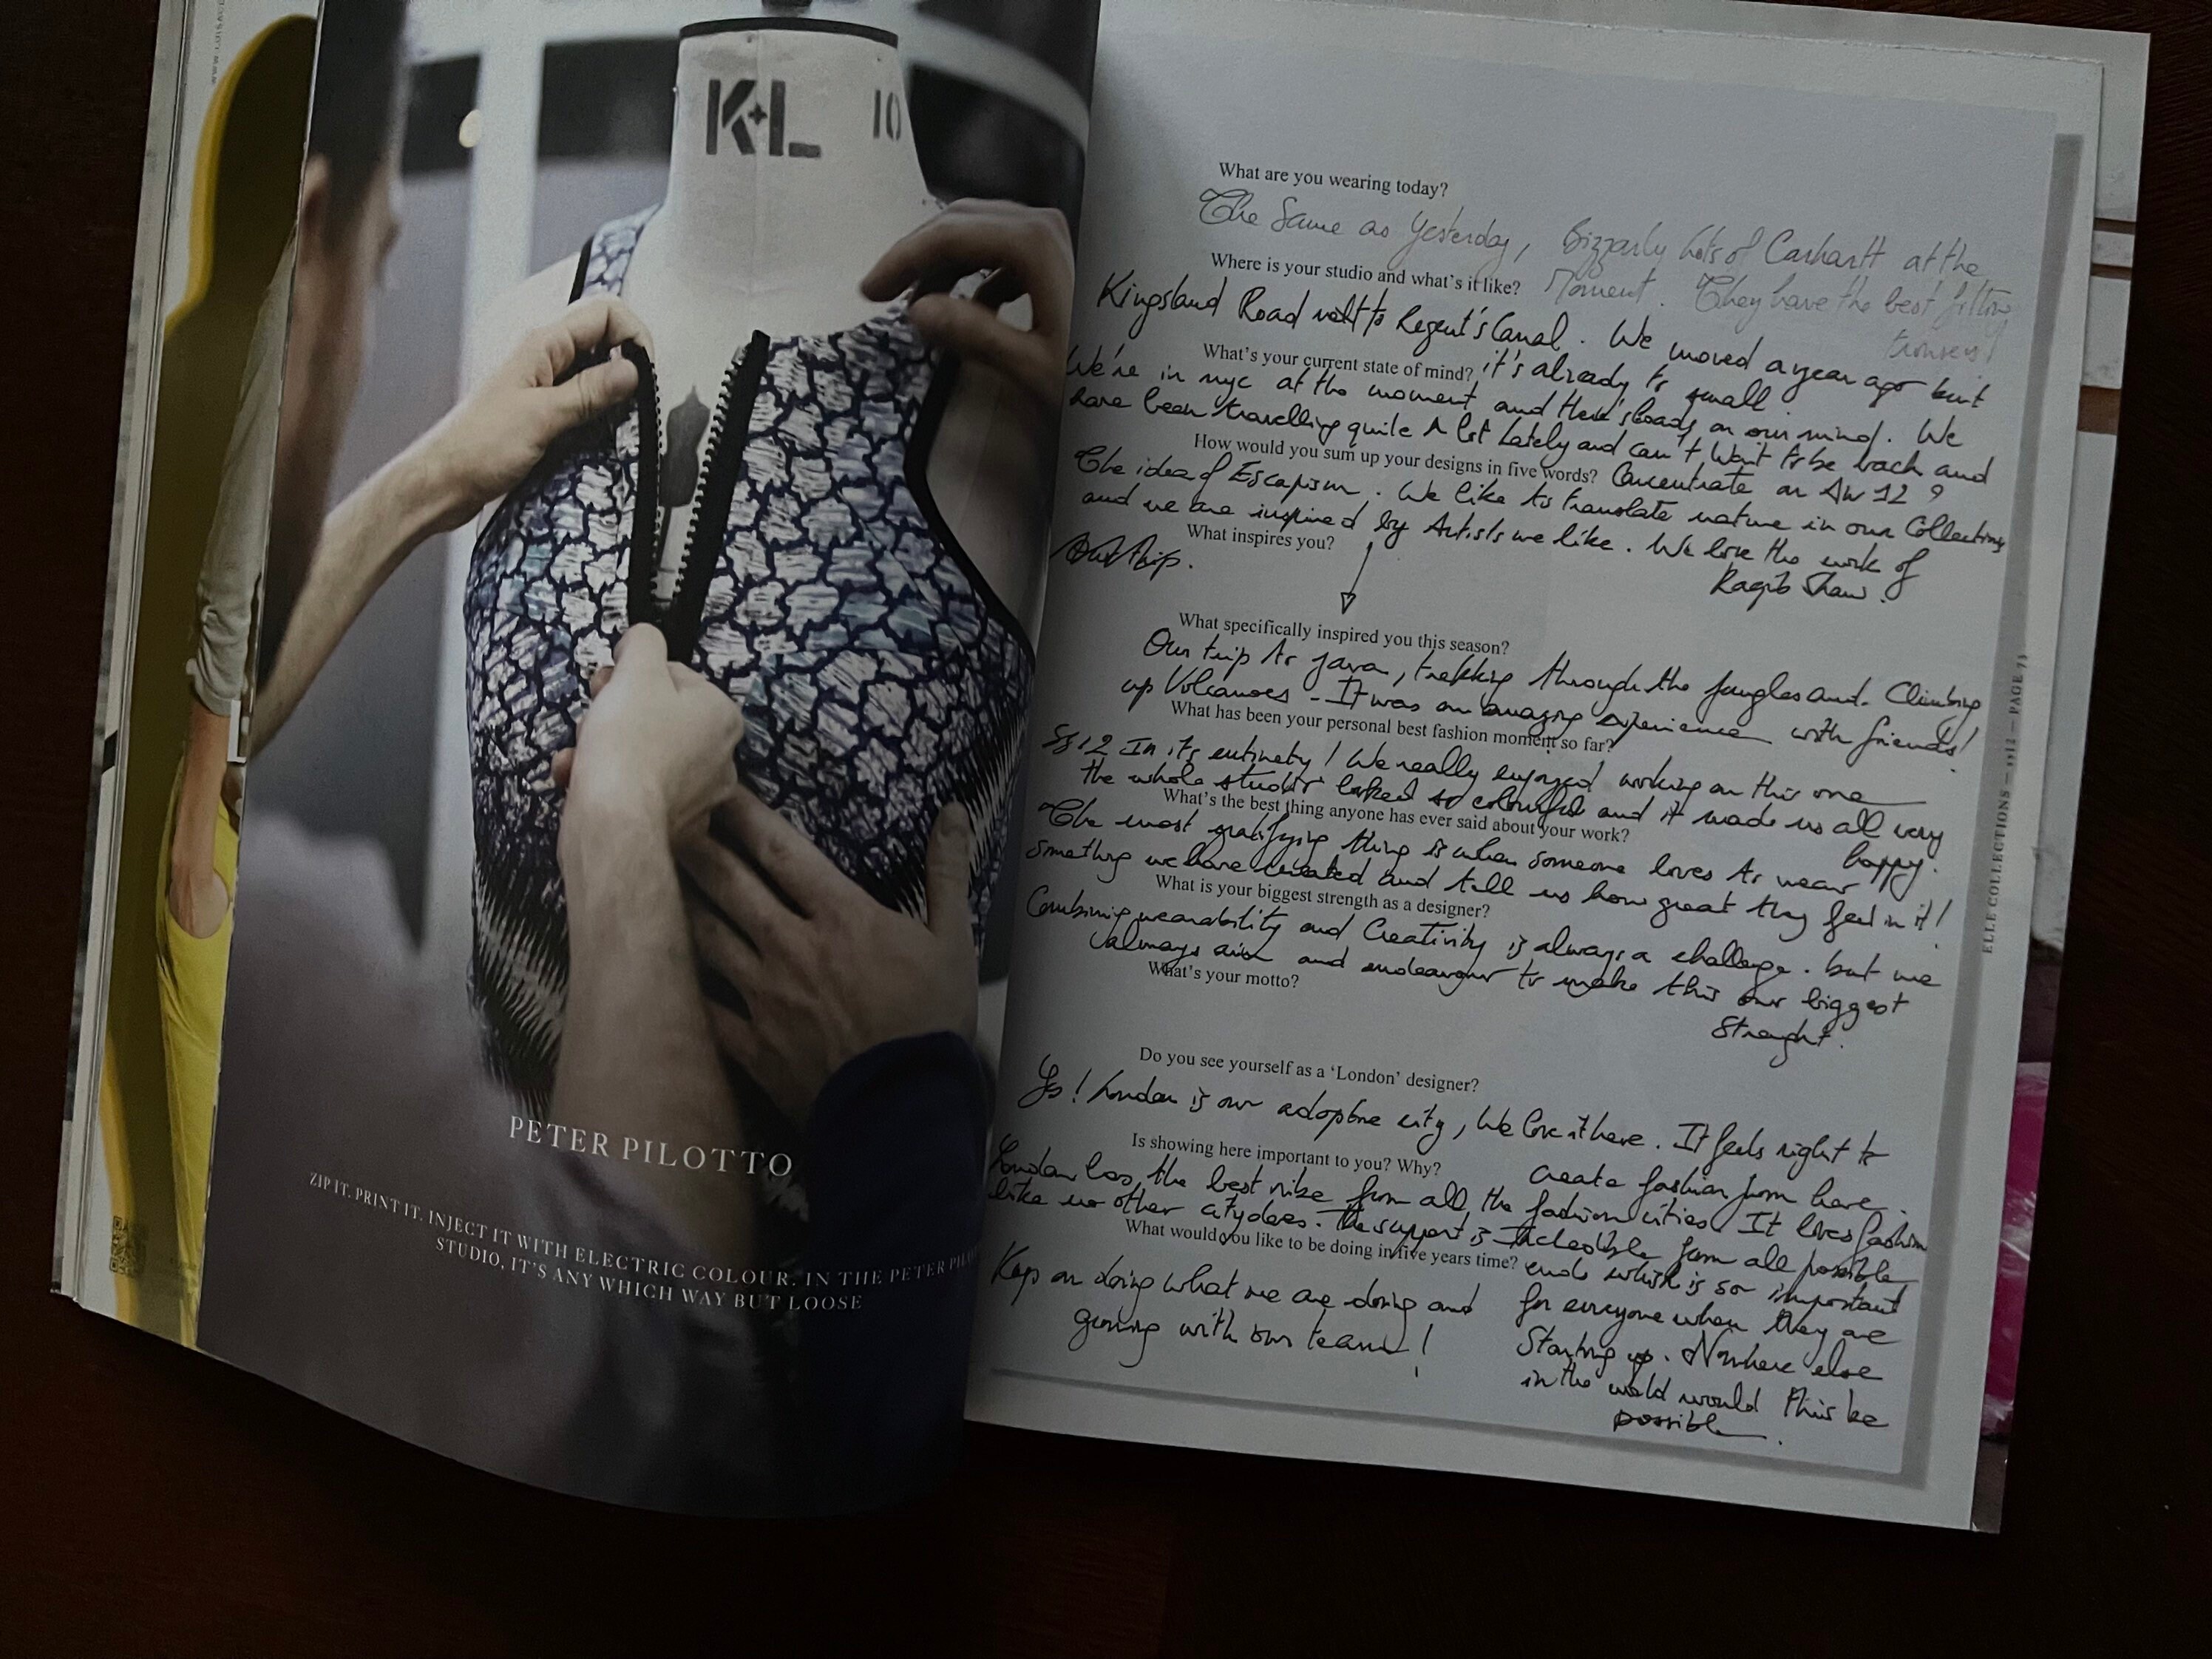 K+L 10
PETER PILOTTO
ZIP IT. PRINT IT. INJECT IT WITH ELECTRIC COLOUR. IN THE PETER
STUDIO, IT'S ANY WHICH WAY BUT LOOSE
What are you wearing today?
The Same as Yesterday, Bizzarly lots of Carhartt at the
Moment. They have the best fitting
trousers!
Where is your studio and what's it like?
Kingsland Road next to Regent's Canal. We moved a year ago but
it's already to small.
What's your current state of mind?
We're in nyc at the moment and there's loads on our mind. We
have been travelling quite A lot Lately and can't Wait to be back and
Concentrate on AW 12
How would you sum up your designs in five words?
The idea of Escapism. We like to translate nature in our Collections
and we are inspired by Artists we like. We love the work of
Raqib Shaw.
What inspires you?
What specifically inspired you this season?
Our trip to Java, trekking through the Jungles and Climbing
up Volcanoes - It was an amazing experience with friends!
What has been your personal best fashion moment so far?
SS12 In its entirety! We really enjoyed working on this one
the whole studio looked so colourful and it made us all very
happy.
What's the best thing anyone has ever said about your work?
The most gratifying thing is when someone loves to wear
Something we have created and tell us how great they feel in it!
What is your biggest strength as a designer?
Combining wearability and Creativity is always a challenge. but we
always aim and endeavour to make this our biggest
Strenght.
What's your motto?
Do you see yourself as a 'London' designer?
Yes! London is our adoptive city, We love it here. It feels right to
create fashion from here.
Is showing here important to you? Why?
London has the best vibe from all the fashion cities. It loves fashion
like no other city does. The support is Incredible from all possible
ends which is so important
for everyone when they are
Starting up. Nowhere else
in the world would this be
possible.
What would you like to be doing in five years time?
Keep on doing what we are doing and
growing with our team!
ELLE COLLECTIONS — SS12 — PAGE 73